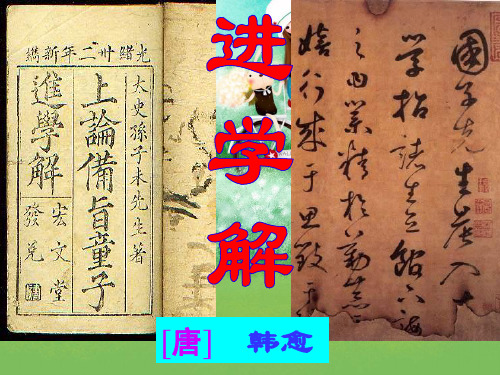 光緒卅二年新鐫
太史孫子未先生著
上論備旨童子
進學解
宏文堂
發兌
进学解
國子先生晨入太
學招諸生立館下誨
之曰業精於勤荒
嬉行成于思毀
[唐] 韩愈